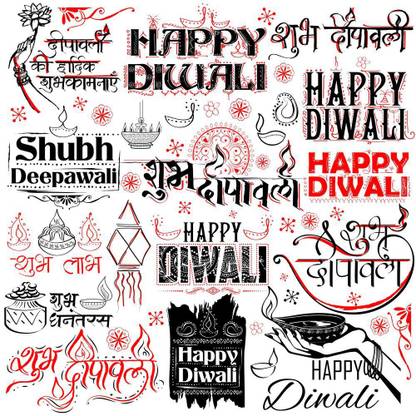 दीपावली
की हार्दिक
शुभकामनाएँ
HAPPY
DIWALI
शुभ दीपावली
HAPPY
DIWALI
Shubh
Deepawali
शुभ दीपावली
HAPPY
DIWALI
शुभ लाभ
HAPPY
DIWALI
शुभ
दीपावली
शुभ
धनतेरस
Happy
Diwali
शुभ दीपावली
HAPPY
Diwali